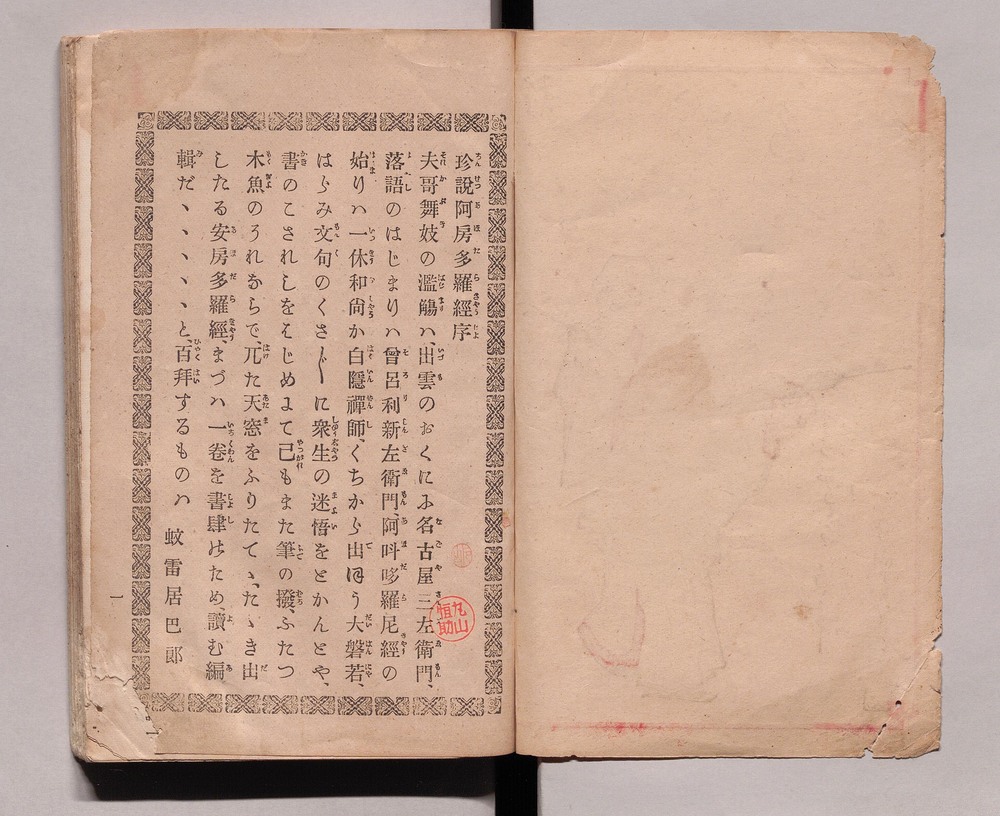 珍說阿房多羅經序
夫哥舞妓の濫觴ハ、出雲のおくにふ名古屋三左衛門、
落語のはじまりハ曾呂利新左衛門、阿呌哆羅尼經の
始りハ一休和尙か白隱禪師、くちから出ほう大磐若、
はらみ文句のくさ〴〵に衆生の迷悟をとかんとや、
書のこされしをはじめまて己もまた筆の撥、ふたつ
木魚のうれからで、兀た天窓をふりたてゝ、たゝき出
したる安房多羅經、まづハ一卷を書肆のため、讀む編
輯だ、ヽヽヽヽと、百拜するものハ
蚊雷居巴郞
一
丸山恒助